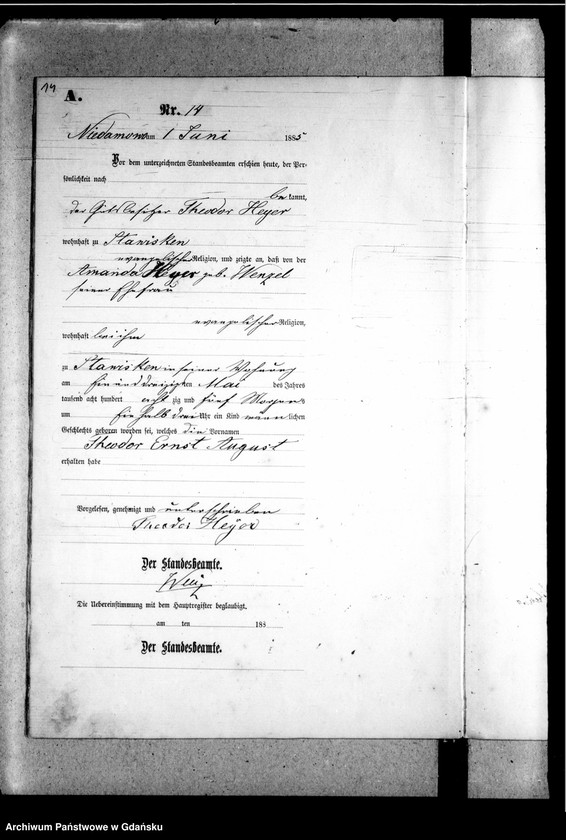 14
A.
Nr. 14
Niedamowo am 1 Juni 1885
Vor dem unterzeichneten Standesbeamten erschien heute, der Per-
sönlichkeit nach
be kannt,
der Gutsbesitzer Theodor Heyer
wohnhaft zu Stawisken
evangelischer Religion, und zeigte an, daß von der
Amanda Heyer geb. Wenzel
seiner Ehefrau
evangelischer Religion,
wohnhaft bei ihm
zu Stawisken in seiner Wohnung
am ein und dreizigsten Mai des Jahres
tausend acht hundert acht zig und fünf Morgens
um ein halb drei Uhr ein Kind männ lichen
Geschlechts geboren worden sei, welches die Vornamen
Theodor Ernst August
erhalten habe
Vorgelesen, genehmigt und unterschrieben
Theodor Heyer
Der Standesbeamte.
Die Uebereinstimmung mit dem Hauptregister beglaubigt.
am ten 188
Der Standesbeamte.
Archiwum Państwowe w Gdańsku